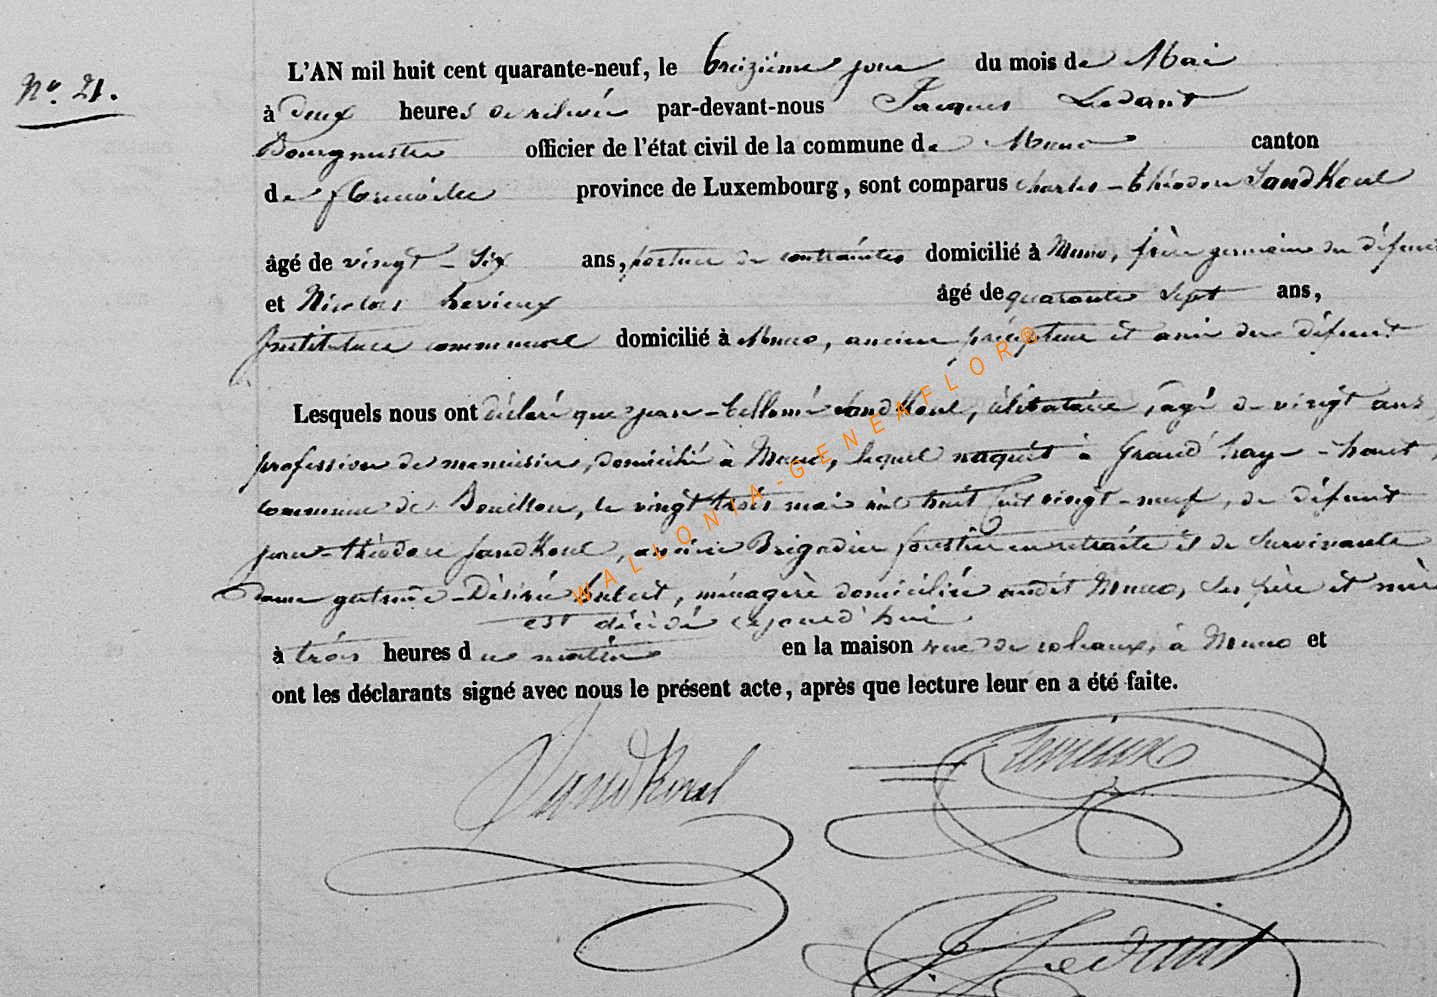 N°. 21.
L'AN mil huit cent quarante-neuf, le treizième jour du mois de Mai
à Deux heures de relevée par-devant-nous Jacques Ledant
Bourgmestre officier de l'état civil de la commune de Muno canton
de florenville province de Luxembourg, sont comparus Charles-théodore Sandkoul
âgé de vingt-six ans, porteur de contraintes domicilié à Muno, frère germain du défunt
et Nicolas hevieux âgé de quarante sept ans,
Instituteur communal domicilié à Muno, ancien précepteur et ami du défunt
Lesquels nous ont déclaré que jean- Sandkoul, célibataire, agé de vingt ans,
profession de menuisier, domicilié à Muno, lequel naquit à Grand'hay-haut,
commune de Bouillon, le vingt trois mai mil huit cent vingt-neuf, de défunt
jean-théodore Sandkoul, ancien Brigadier forestier en retraite et de Survivante
Dame gertrude-Désirée hubert, ménagère domiciliée audit Muno, ses père et mère
est décédé aujourd'hui
à trois heures du matin en la maison rue de à Muno et
ont les déclarants signé avec nous le présent acte, après que lecture leur en a été faite.
WALLONIA-GENEAFLOR®
Sandkoul
hevieux
J. Ledant